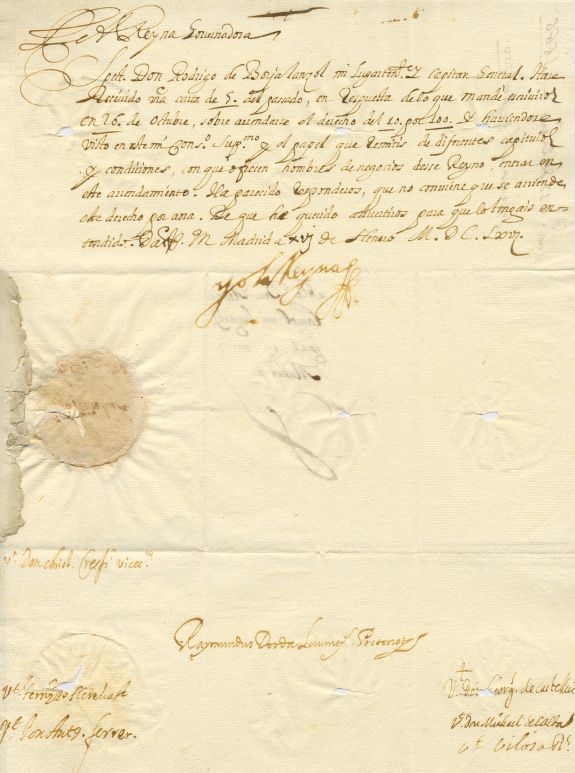 La Reyna Governadora
Spect. Don Rodrigo de Borja lanzol mi lugartin.te y Capitan General. Hase
Recivido vra carta de 5. del passado, en respuesta de lo que mandè escriviros
en 26. de Octubre, sobre arrendarse el derecho del 10. por 100. Y haviendose
visto en este mi Cons.o Sup.mo y el papel que remitis de diferentes capitulos
y condiciones, con que ofrecen hombres de negocios desse Reyno, entrar en
este arrendamiento. Ha parecido responderos, que no conviene que se arriende
este derecho por aora. De que he querido advertiros para que lo tengais en-
tendido. Dat. M Madrid a xvj de Henero M. D. C. Lxvj.
yo la Reyna
V.t Don Christ. Crespi vicec.
Raymundus Dorda
V.t Fern.dez de Heredia
V.t Don Ant.o Ferrer.
V.t Don Georg. de Castellvi
V.t Don Michael de Calba
V.t Vilosa R.s